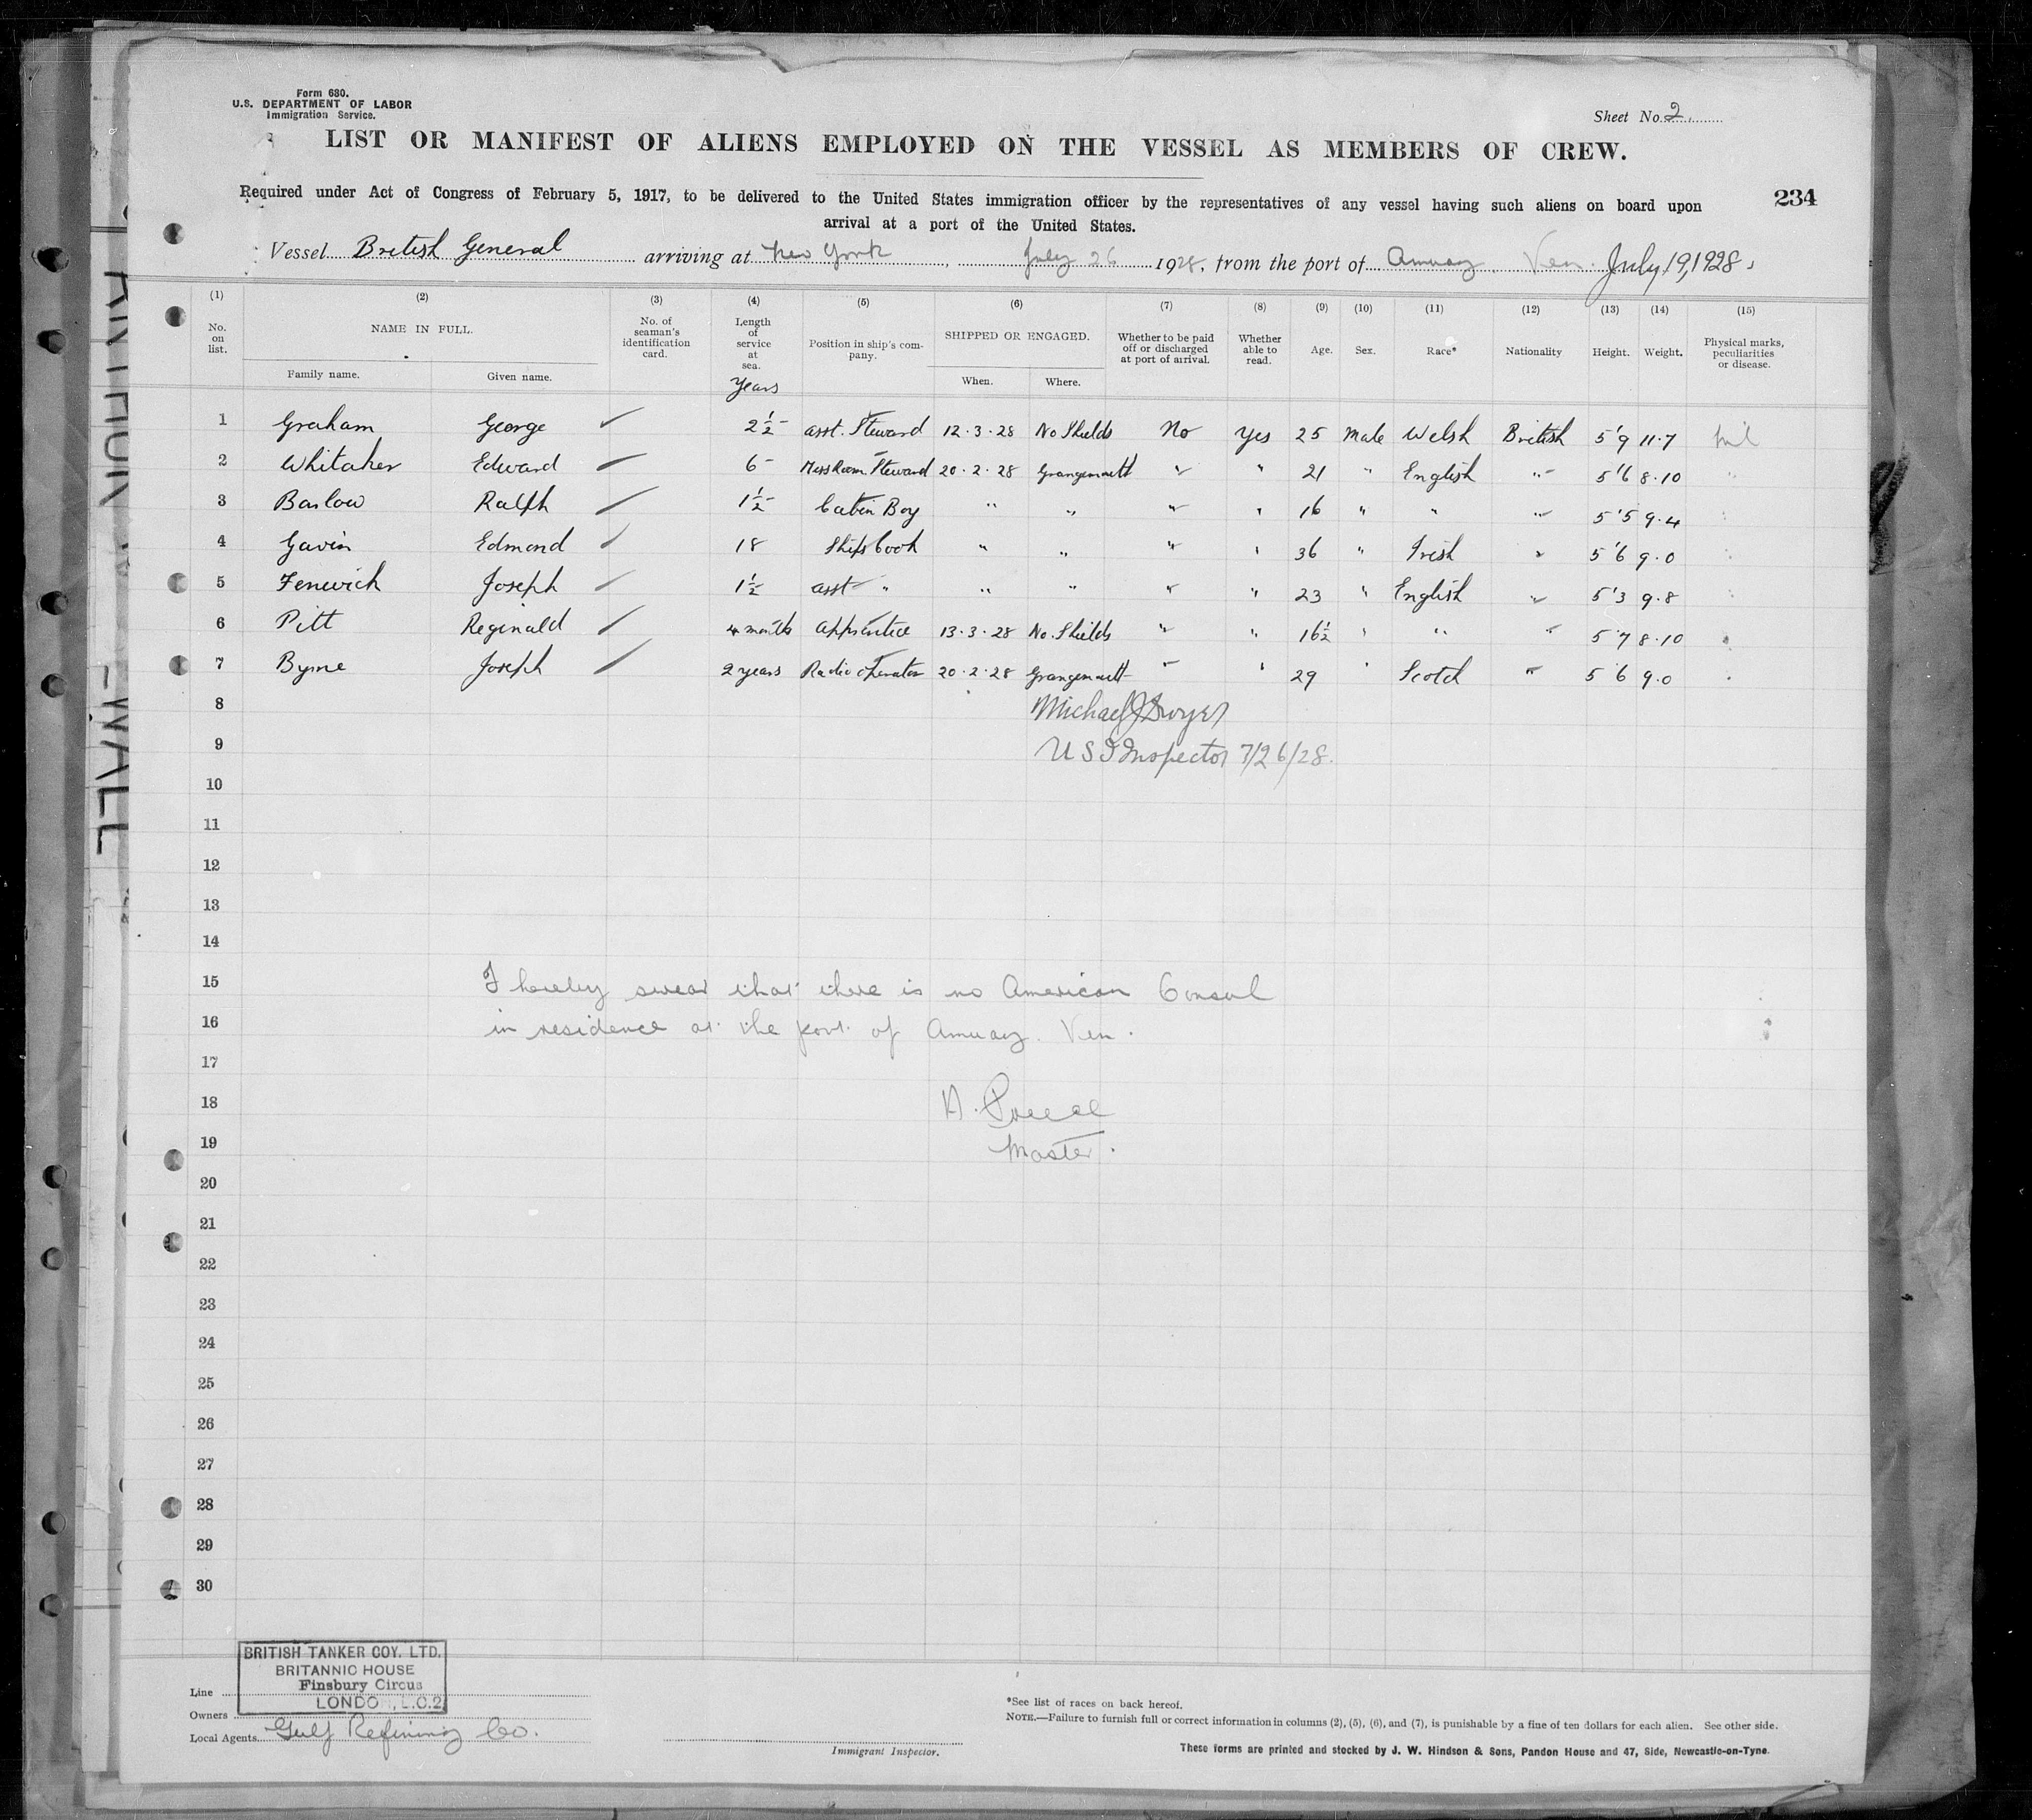 Form 680.
U.S. DEPARTMENT OF LABOR
Immigration Service.
Sheet No. 2.
LIST OR MANIFEST OF ALIENS EMPLOYED ON THE VESSEL AS MEMBERS OF CREW.
Required under Act of Congress of February 5, 1917, to be delivered to the United States immigration officer by the representatives of any vessel having such aliens on board upon
arrival at a port of the United States.
234
Vessel British General arriving at New York July 26 1928, from the port of Amuay Ven. July 19, 1928.
(1) (2) (3) (4) (5) (6) (7) (8) (9) (10) (11) (12) (13) (14) (15)
No. on list. NAME IN FULL. Family name. Given name. No. of seaman's identification card. Length of service at sea. Years Position in ship's company. SHIPPED OR ENGAGED. When. Where. Whether to be paid off or discharged at port of arrival. Whether able to read. Age. Sex. Race* Nationality Height. Weight. Physical marks, peculiarities or disease.
1 Graham George 2 1/2 Asst. Steward 12.3.28 No Shields No Yes 25 Male Welsh British 5'9 11.7 Nil
2 Whitaker Edward 6 Mess Room Steward 20.2.28 Grangemouth " " 21 " English " 5'6 8.10
3 Barlow Ralph 1 1/2 Cabin Boy " " " " 16 " " " 5'5 9.4
4 Gavin Edmond 18 Ships Cook " " " " 36 " Irish " 5'6 9.0
5 Fenwick Joseph 1 1/2 asst " " " " " 23 " English " 5'3 9.8
6 Pitt Reginald 4 months Apprentice 13.3.28 No. Shields " " 16 1/2 " " " 5'7 8.10
7 Byrne Joseph 2 years Radio Operator 20.2.28 Grangemouth " " 29 " Scotch " 5'6 9.0
8 Michael J Dwyer
9 U S I Inspector 7/26/28.
10
11
12
13
14
15 I hereby swear that there is no American Consul
16 in residence at the port of Amuay. Ven.
17
18
19 Master.
20
21
22
23
24
25
26
27
28
29
30
BRITISH TANKER COY. LTD.
BRITANNIC HOUSE
Finsbury Circus
LONDON, E.C.2
Line
Owners
Local Agents Gulf Refining Co.
Immigrant Inspector.
*See list of races on back hereof.
NOTE.—Failure to furnish full or correct information in columns (2), (5), (6), and (7), is punishable by a fine of ten dollars for each alien. See other side.
These forms are printed and stocked by J. W. Hindson & Sons, Pandon House and 47, Side, Newcastle-on-Tyne.